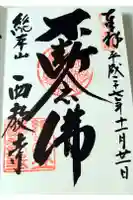 奉拝 平成二十七年十一月廿一日
不断念佛
総本山
西教寺